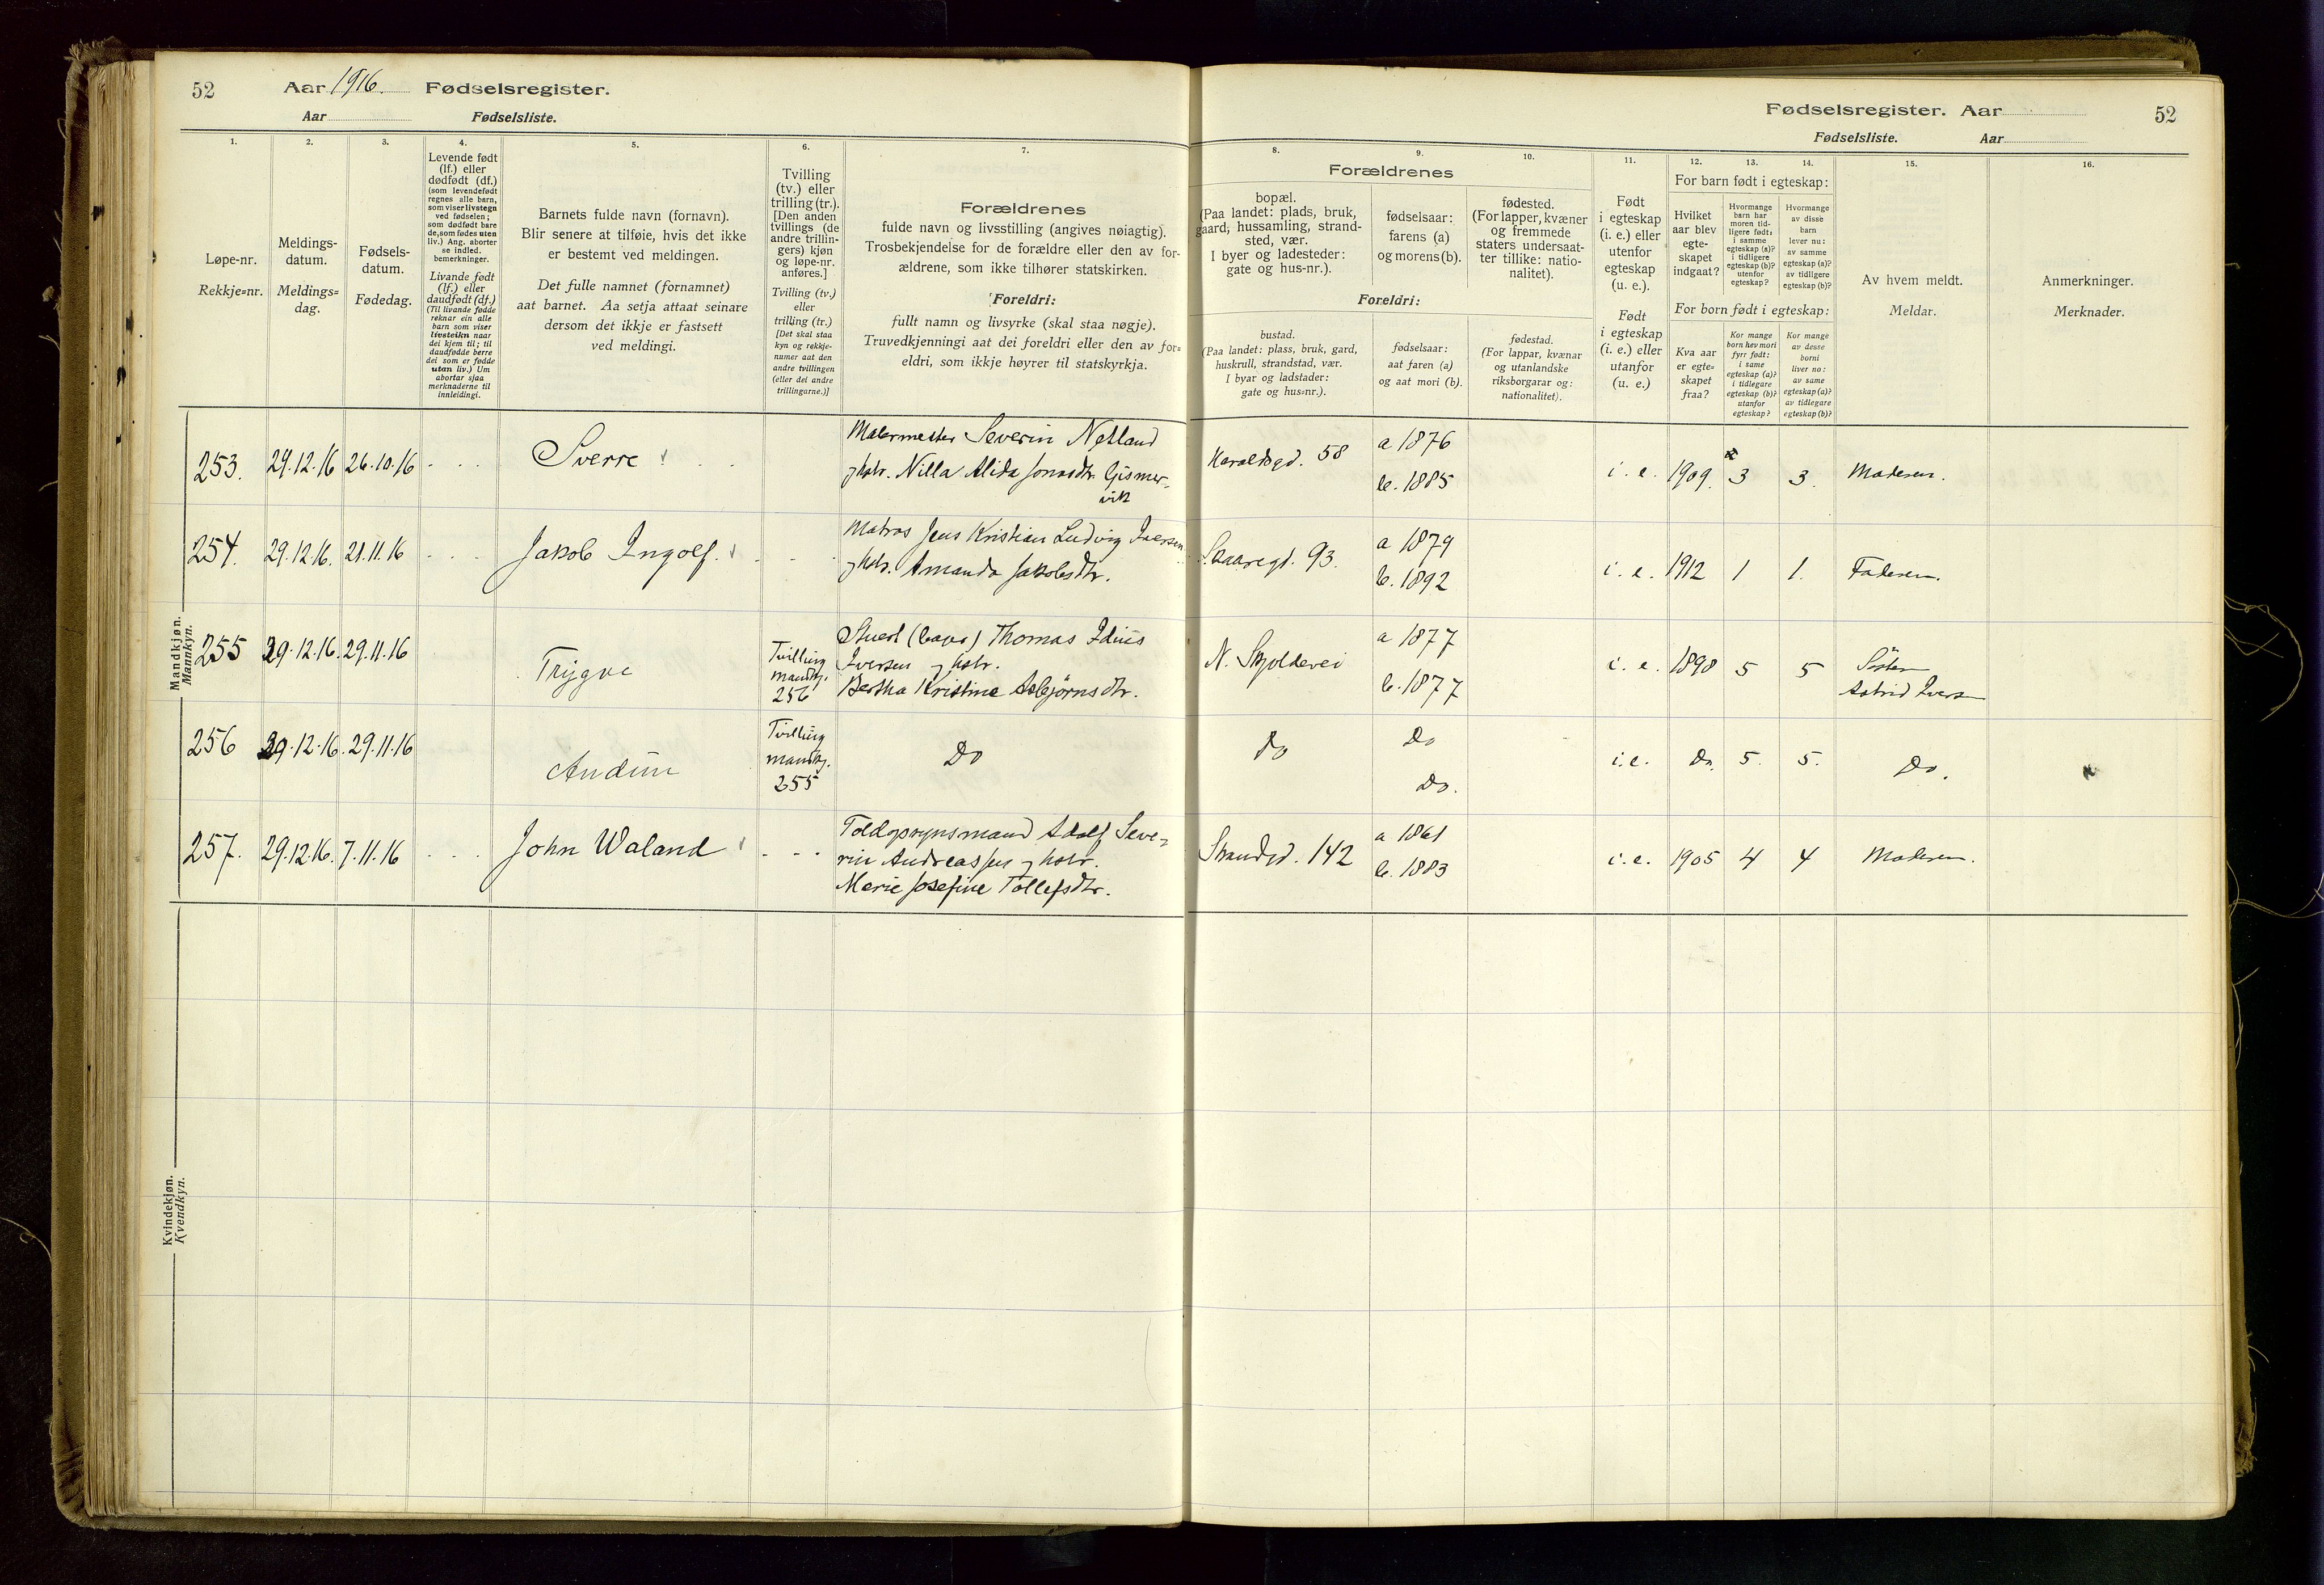 52
Aar 1916. Fødselsregister.
Aar Fødselsliste.
Fødselsregister. Aar
52
Fødselsliste. Aar
1. 2. 3. 4. 5. 6. 7. 8. 9. 10. 11. 12. 13. 14. 15. 16.
Løpe-nr.
Rekkje=nr.
Meldings-
datum.
Meldings=
dag.
Fødsels-
datum.
Fødedag.
Levende født
(lf.) eller
dødfødt (df.)
(som levendefødt
regnes alle barn,
som viser livstegn
ved fødselen;
som dødfødt bare
de, som fødes uten
liv.) Ang. aborter
se indled.
bemerkninger.
Livande født
(lf.) eller
daudfødt (df.)
(Til livande fødde
reknar ein alle
barn som viser
livsteikn naar
dei kjem til; til
daudfødde berre
dei som er fødde
utan liv.) Um
abortar sjaa
merknaderne til
innleidingi.
Barnets fulde navn (fornavn).
Blir senere at tilføie, hvis det ikke
er bestemt ved meldingen.
Det fulle namnet (fornamnet)
aat barnet. Aa setja attaat seinare
dersom det ikkje er fastsett
ved meldingi.
Tvilling
(tv.) eller
trilling (tr.).
[Den anden
tvillings (de
andre trillin-
gers) kjøn
og løpe-nr.
anføres.]
Tvilling (tv.)
eller
trilling (tr.)
[Det skal staa
kyn og rekkje-
numer aat den
andre tvillingen
(eller dei andre
trillingarne.)]
Forældrenes
fulde navn og livsstilling (angives nøiagtig).
Trosbekjendelse for de forældre eller den av for-
ældrene, som ikke tilhører statskirken.
Foreldri:
fullt namn og livsyrke (skal staa nøgje).
Truvedkjenningi aat dei foreldri eller den av for=
eldri, som ikkje høyrer til statskyrkja.
Forældrenes
bopæl.
(Paa landet: plads, bruk,
gaard, hussamling, strand-
sted, vær.
I byer og ladesteder:
gate og hus-nr.).
fødselsaar:
farens (a)
og morens (b).
fødested.
(For lapper, kvæner
og fremmede
staters undersaat-
ter tillike: natio-
nalitet).
Foreldri:
bustad.
(Paa landet: plass, bruk, gard,
huskrull, strandstad, vær.
I byar og ladstader:
gate og hus=nr.).
fødselsaar:
aat faren (a)
og aat mori (b).
fødestad.
(For lappar, kvænar
og utanlandske
riksborgarar og:
nationalitet).
Født
i egteskap
(i. e.) eller
utenfor
egteskap
(u. e.).
Født
i egteskap
(i. e.) eller
utanfor
(u. e.)
For barn født i egteskap:
Hvilket
aar blev
egte-
skapet
indgaat?
Hvormange
barn har
moren tid-
ligere født:
i samme
egteskap (a)?
i tidligere
egteskap (b)?
utenfor
egteskap?
Hvormange
av disse
barn
lever nu:
av samme
egteskap (a)?
av tidligere
egteskap (b)?
For born født i egteskap:
Kva aar
er egte=
skapet
fraa?
Kor mange
born hev mori
fyrr født:
i same
egteskap (a)?
i tidlegare
egteskap (b)?
utanfor
egteskap?
Kor mange
av desse
borni
liver no:
av same
egteskap (a)?
av tidlegare
egteskap (b)?
Av hvem meldt.
Meldar.
Anmerkninger.
Merknader.
Mandkjøn.
Mannkyn.
253. 29.12.16 26.10.16 Sverre
Malermester Severin Netland
og hstr. Nilla Alida Jonasdtr. Gismer-
vik
Haraldsgd. 58
a 1876
b. 1885
i. e. 1909. 3 3. Moderen.
254. 29.12.16. 21.11.16 Jakob Ingolf.
Matros Jens Kristian Ludvig Iversen
og hstr. Amanda Jakobsdtr.
Skaaregt. 93.
a 1879
b. 1892
i. e. 1912 1 1. Faderen.
255 29.12.16. 29.11.16 Trygve
Tvilling
mandkj.
256
Stuert Thomas Idius
Iversen og hstr.
Bertha Kristine Asbjørnsdtr.
N. Skjoldevei
a 1877
b. 1877
i. e. 1898 5 5
Søster
Astrid Iversen
256 29.12.16. 29.11.16 Audun
Tvilling
mandkj.
255
Do
Do
Do
Do.
i. e. Do. 5. 5. Do.
257. 29.12.16. 7.11.16 John Waland
Toldopsynsmand Adolf Seve-
rin Andreassen og hstr.
Marie Josefine Tollefsdtr.
Strandgd. 142
a 1861
b. 1883
i. e. 1905 4 4 Moderen.
Kvindekjøn.
Kvendkyn.